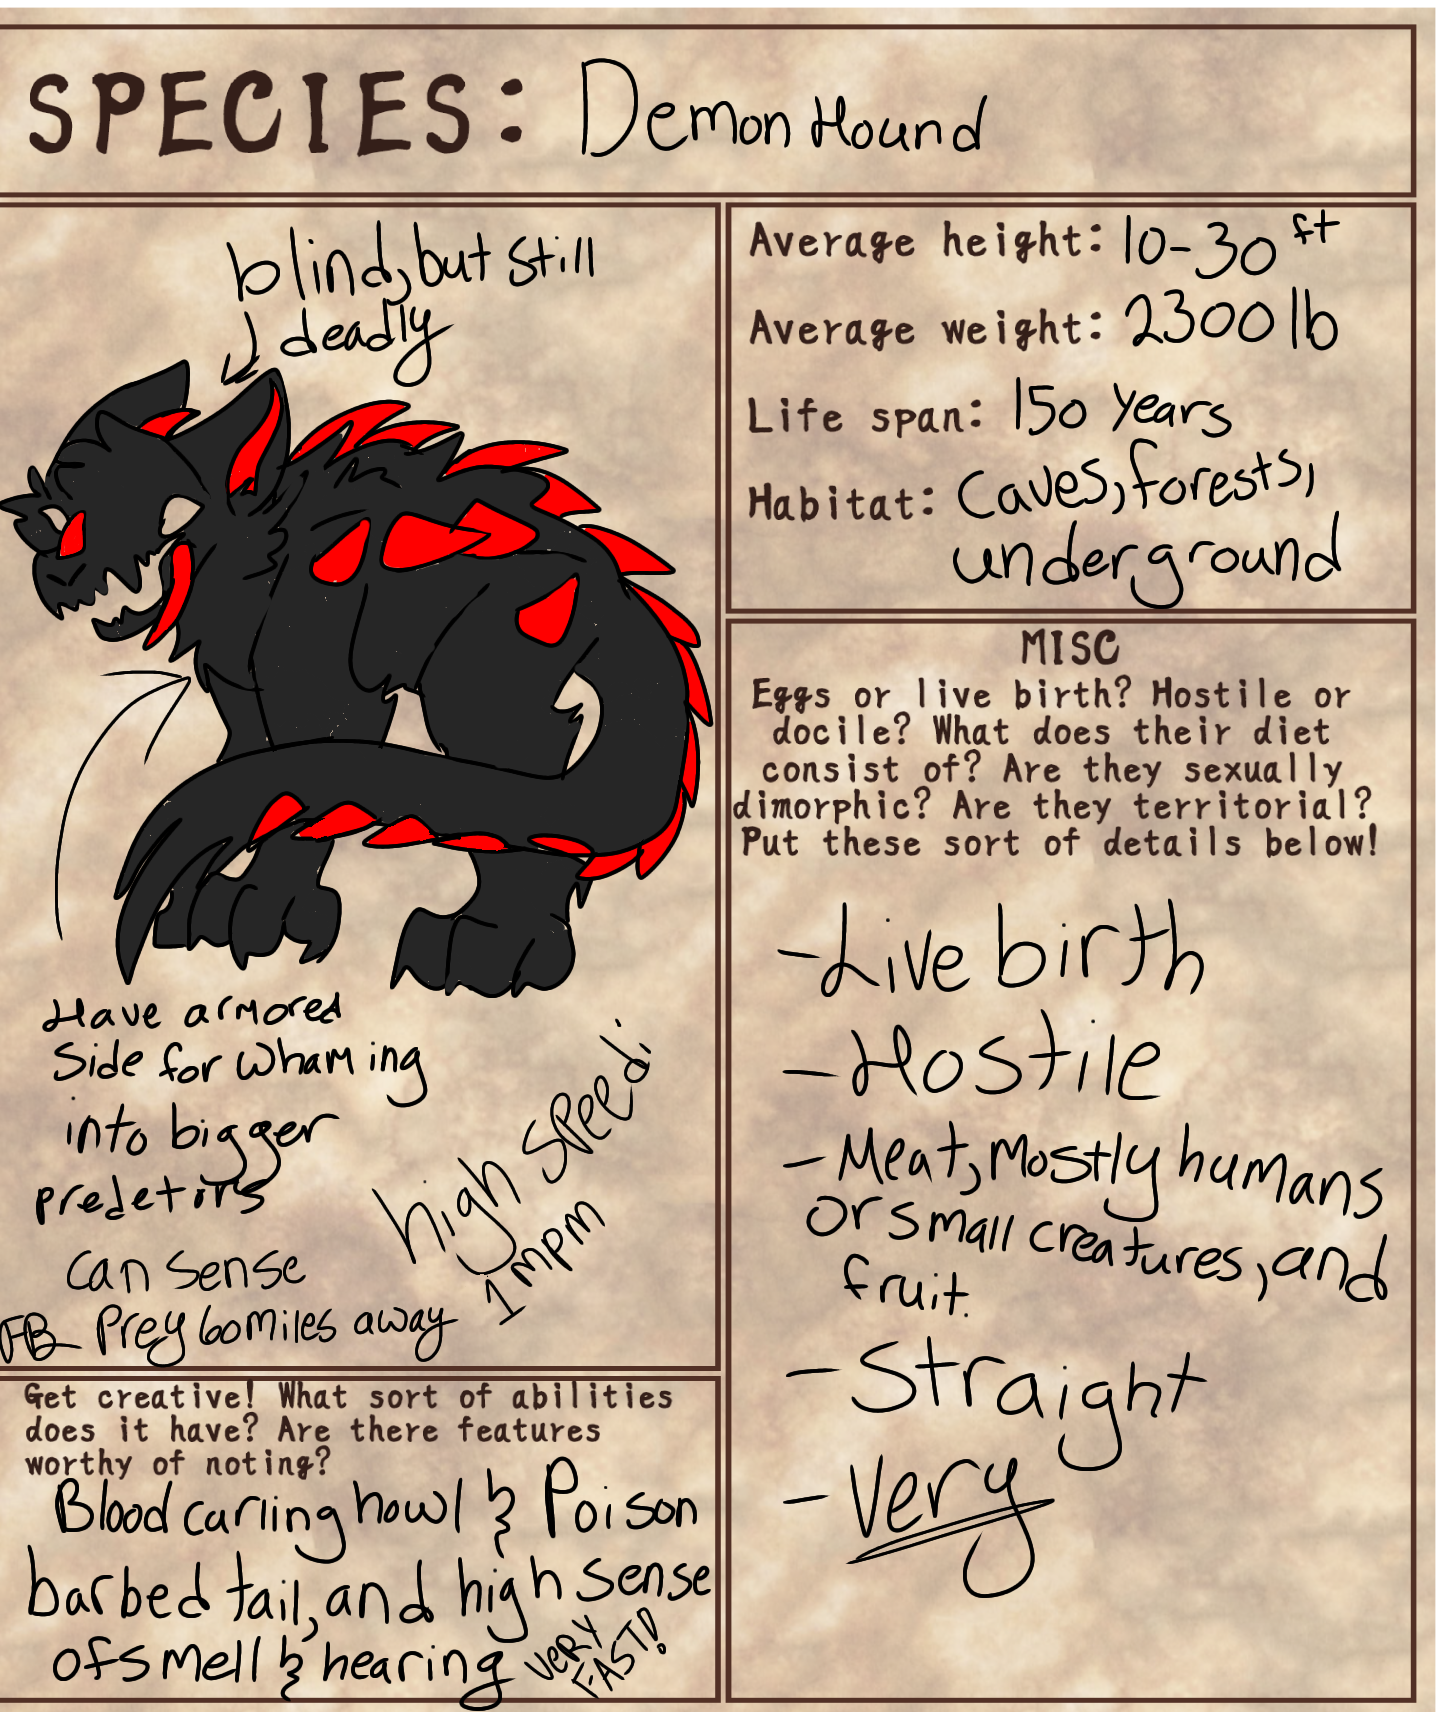 SPECIES: Demon Hound
blind, but still
deadly
Have armored
side for whaming
into bigger
predetirs
can sense
Prey 60 miles away
high speed:
1 mpm
Average height: 10-30 ft
Average weight: 2300 lb
Life span: 150 years
Habitat: Caves, forests,
underground
MISC
Eggs or live birth? Hostile or
docile? What does their diet
consist of? Are they sexually
dimorphic? Are they territorial?
Put these sort of details below!
- Live birth
- Hostile
- Meat, mostly humans
or small creatures, and
fruit.
- Straight
- Very
Get creative! What sort of abilities
does it have? Are there features
worthy of noting?
Blood curling howl & Poison
barbed tail, and high sense
of smell & hearing
VERY
FAST!